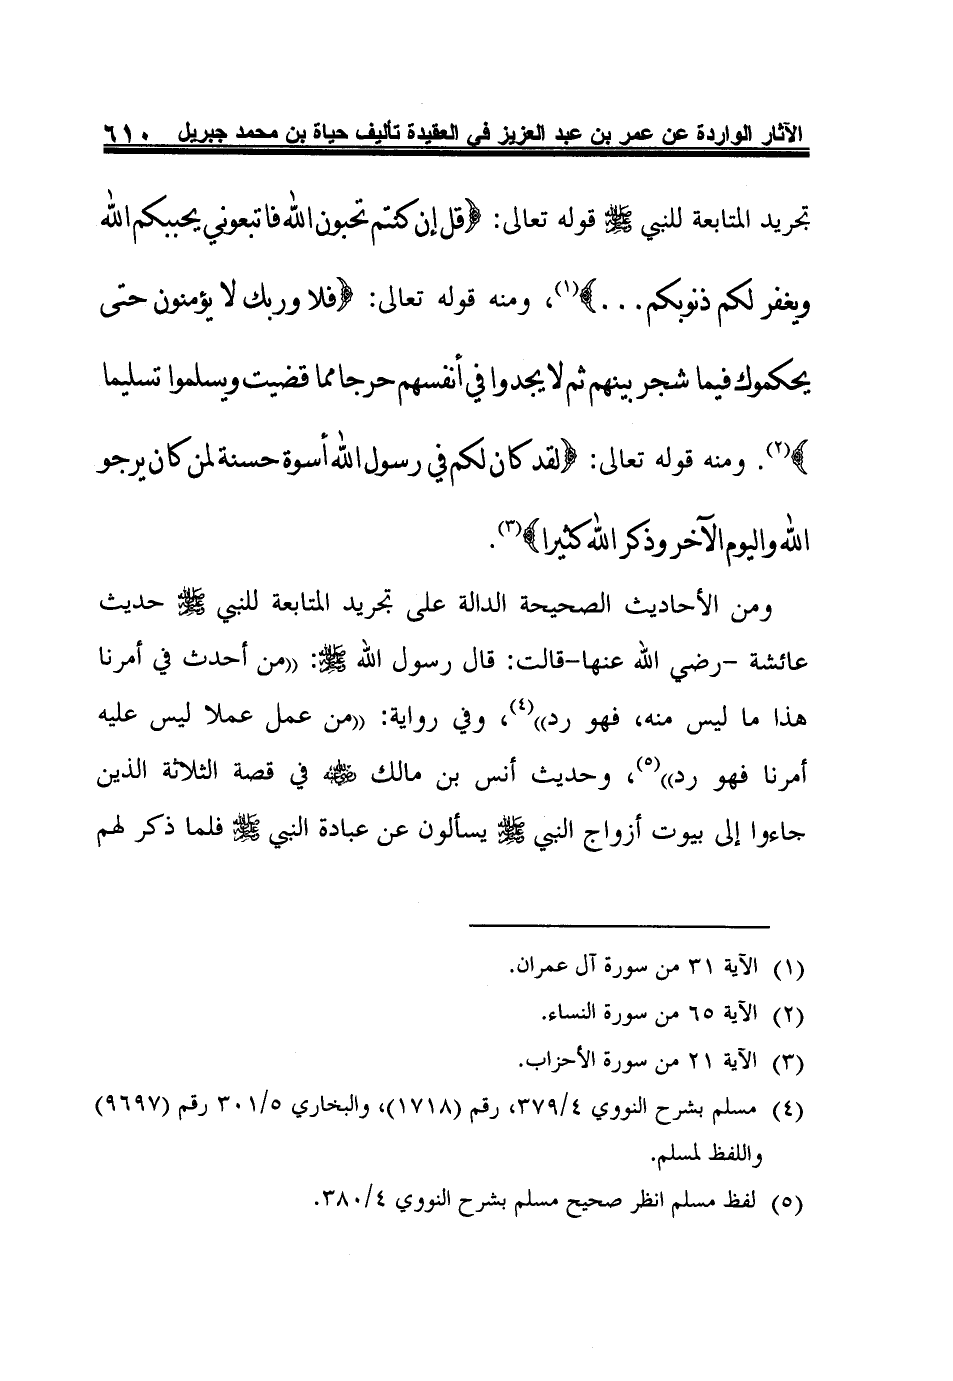 الآثار الواردة عن عمر بن عبد العزيز في العقيدة تأليف حياة بن محمد جبريل ٦١٠
تجريد المتابعة للنبي ﷺ قوله تعالى: ﴿قل إن كنتم تحبون الله فاتبعوني يحببكم الله
ويغفر لكم ذنوبكم...﴾(١)، ومنه قوله تعالى: ﴿فلا وربك لا يؤمنون حتى
يحكموك فيما شجر بينهم ثم لا يجدوا في أنفسهم حرجا مما قضيت ويسلموا تسليما
﴾(٢). ومنه قوله تعالى: ﴿لقد كان لكم في رسول الله أسوة حسنة لمن كان يرجو
الله واليوم الآخر وذكر الله كثيرا﴾(٣).
ومن الأحاديث الصحيحة الدالة على تجريد المتابعة للنبي ﷺ حديث
عائشة -رضي الله عنها-قالت: قال رسول الله ﷺ: ((من أحدث في أمرنا
هذا ما ليس منه، فهو رد))(٤)، وفي رواية: ((من عمل عملا ليس عليه
أمرنا فهو رد))(٥)، وحديث أنس بن مالك رضي الله عنه في قصة الثلاثة الذين
جاءوا إلى بيوت أزواج النبي ﷺ يسألون عن عبادة النبي ﷺ فلما ذكر لهم
(١) الآية ٣١ من سورة آل عمران.
(٢) الآية ٦٥ من سورة النساء.
(٣) الآية ٢١ من سورة الأحزاب.
(٤) مسلم بشرح النووي ٣٧٩/٤، رقم (١٧١٨)، والبخاري ٣٠١/٥ رقم (٩٦٩٧)
واللفظ لمسلم.
(٥) لفظ مسلم انظر صحيح مسلم بشرح النووي ٣٨٠/٤.